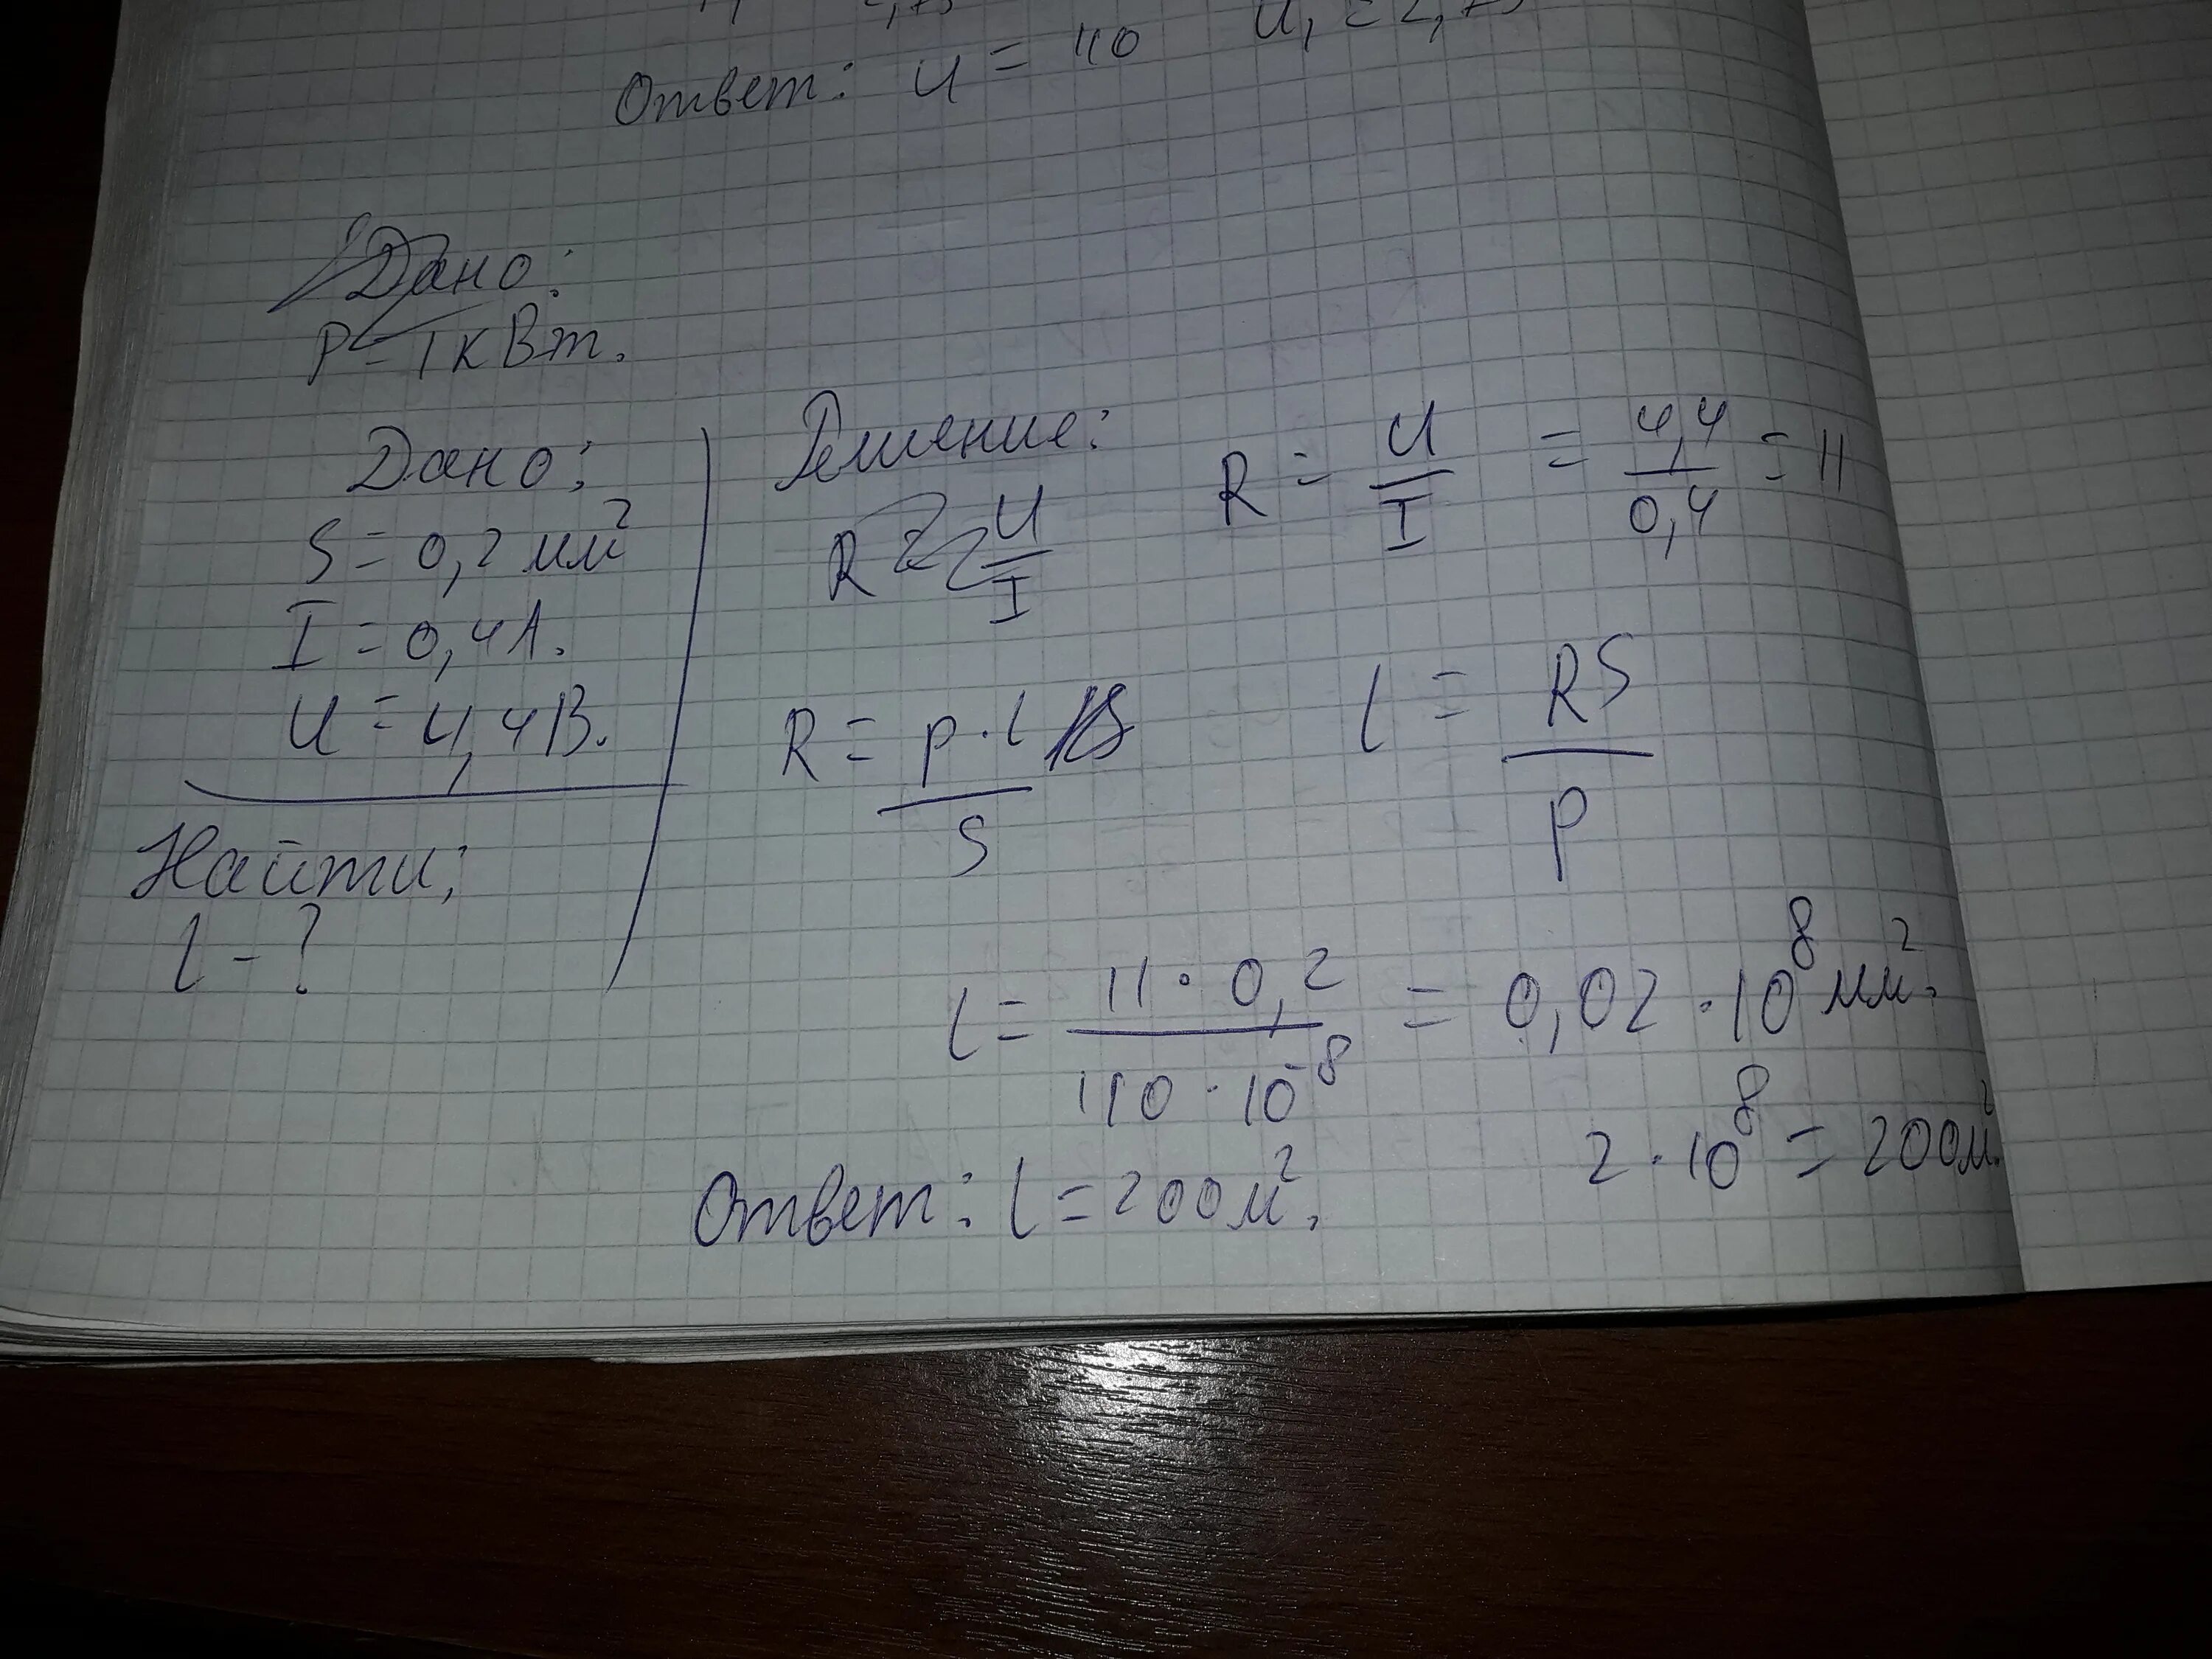 Ответ: U = 110 U₁ = 2,75
Дано:
P = 1 кВт.
Дано:
S = 0,2 мм²
I = 0,4 А.
U = 4,4 В.
Найти:
l - ?
Решение:
R = U/I
R = U/I = 4,4/0,4 = 11
R = p · l / S
l = RS/p
l = 11 · 0,2 / 110 · 10⁻⁸ = 0,02 · 10⁸ мм².
2 · 10⁸ = 200 м².
Ответ: l = 200 м².